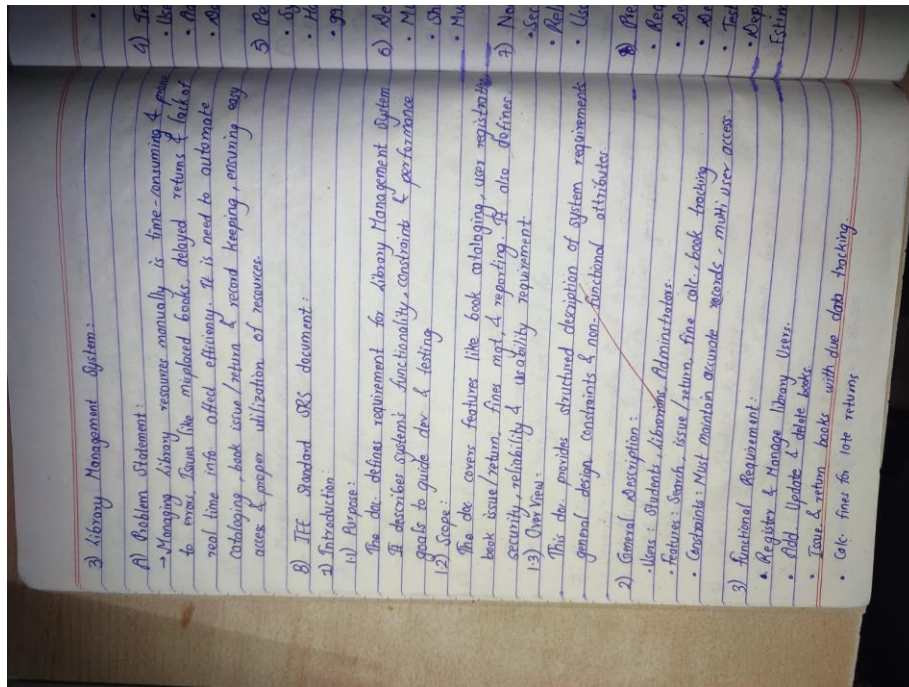 3) Library Management System:
A) Problem Statement:
→ Managing library resources manually is time-consuming & prone
to errors, Issues like misplaced books, delayed returns & lack of
real time info affect efficiency. It is need to automate
cataloging, book issue/return & record keeping, ensuring easy
access & proper utilization of resources.
B) IEE Standard SRS document:
1) Introduction:
1.1) Purpose:
The doc. defines requirement for Library Management System
It describes system's functionality, constraints & performance
goals to guide dev & testing
1.2) Scope:
The doc covers features like book cataloging, user registration
book issue/return, fines mgt, & reporting. It also defines
security, reliability & usability requirement
1.3) OverView:
This doc provides structured description of system requirements
general design constraints & non-functional attributes
2) General Description:
• Users: Students, librarians, Administrators.
• Features: Search, issue/return, fine calc., book tracking
• Constraints: Must maintain accurate records, multi user access.
3) Functional Requirement:
• Register & Manage library Users.
• Add Update & delete books
• Issue & return books with due date tracking.
• Calc. fines for late returns
4)
•
•
5)
•
•
•
6) De
• Mu
• Sh
• Mu
7) No
• Sec
• Rel
• Us
8) Pre
• Req
• De
• De
• Test
• Dep
Estim